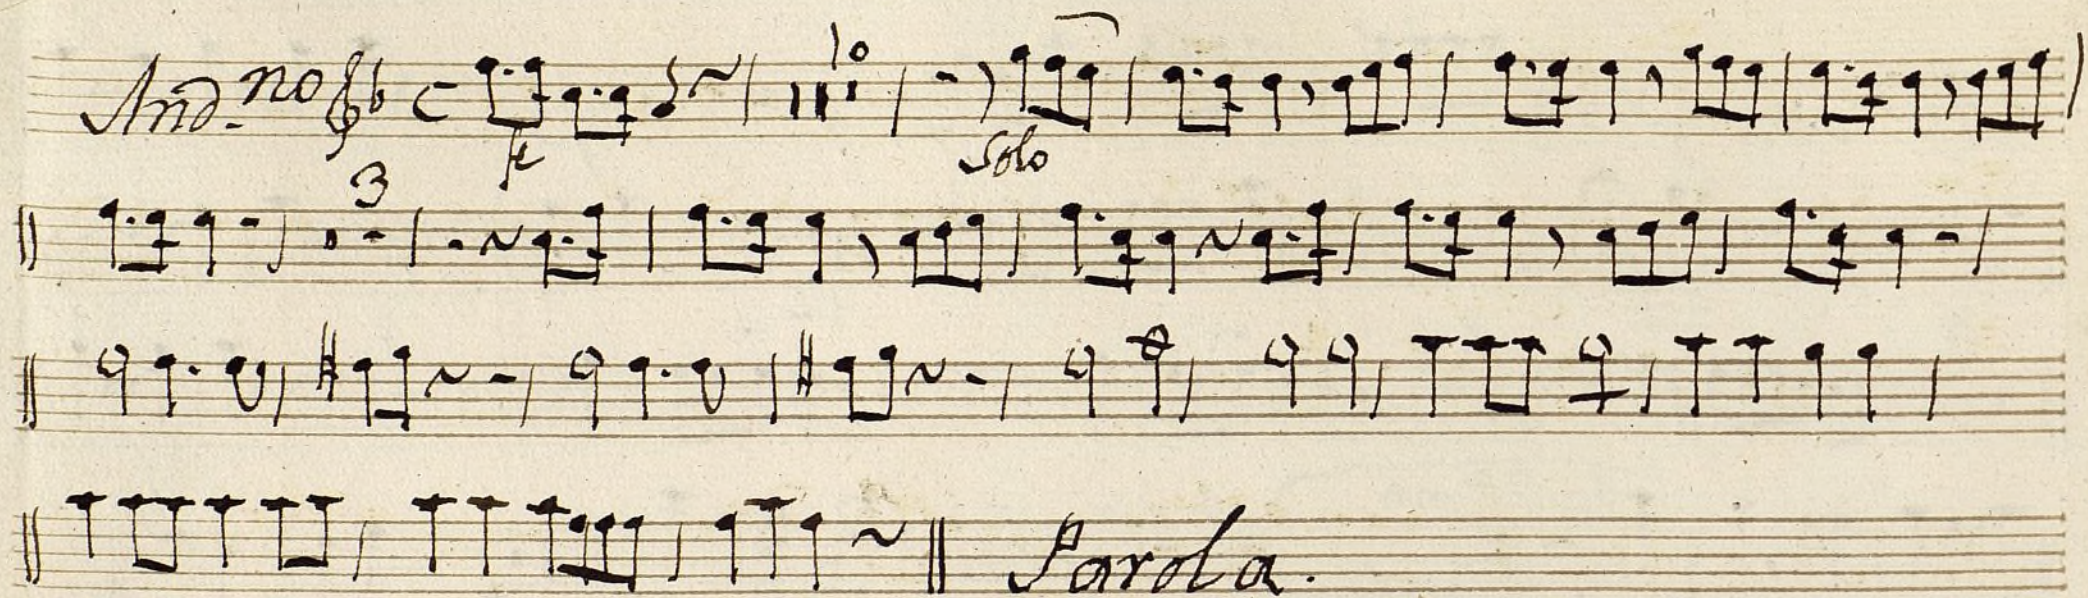 And.no 10
fe Solo
3
Parola.